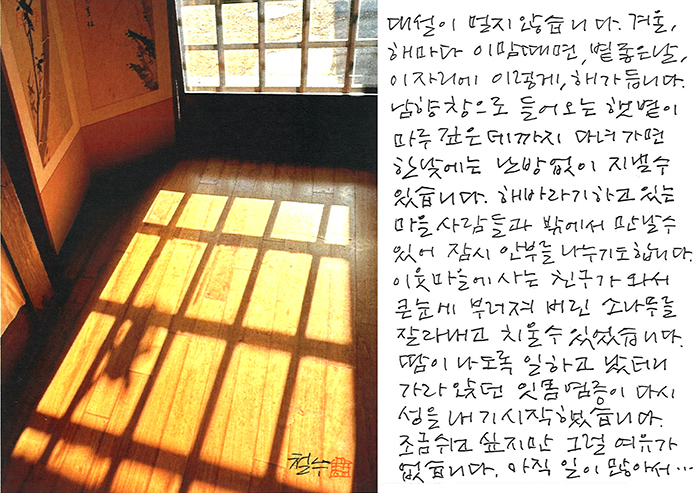 대설이 멀지 않습니다. 겨울,
해마다 이맘때면, 볕좋은날,
이자리에 이렇게, 해가 듭니다.
남향창으로 들어오는 햇볕이
마루 깊은데까지 다녀가면
한낮에는 난방없이 지낼수
있습니다. 해바라기하고 있는
마을사람들과 밖에서 만날수
있어 잠시 안부를 나누기도합니다.
이웃마을에 사는 친구가 와서
큰눈에 부러져 버린 소나무를
잘라내고 치울수 있었습니다.
땀이 나도록 일하고 났더니
가라앉던 잇몸염증이 다시
성을 내기시작했습니다.
조금쉬고 싶지만 그럴 여유가
없습니다. 아직 일이 많아서…
철수